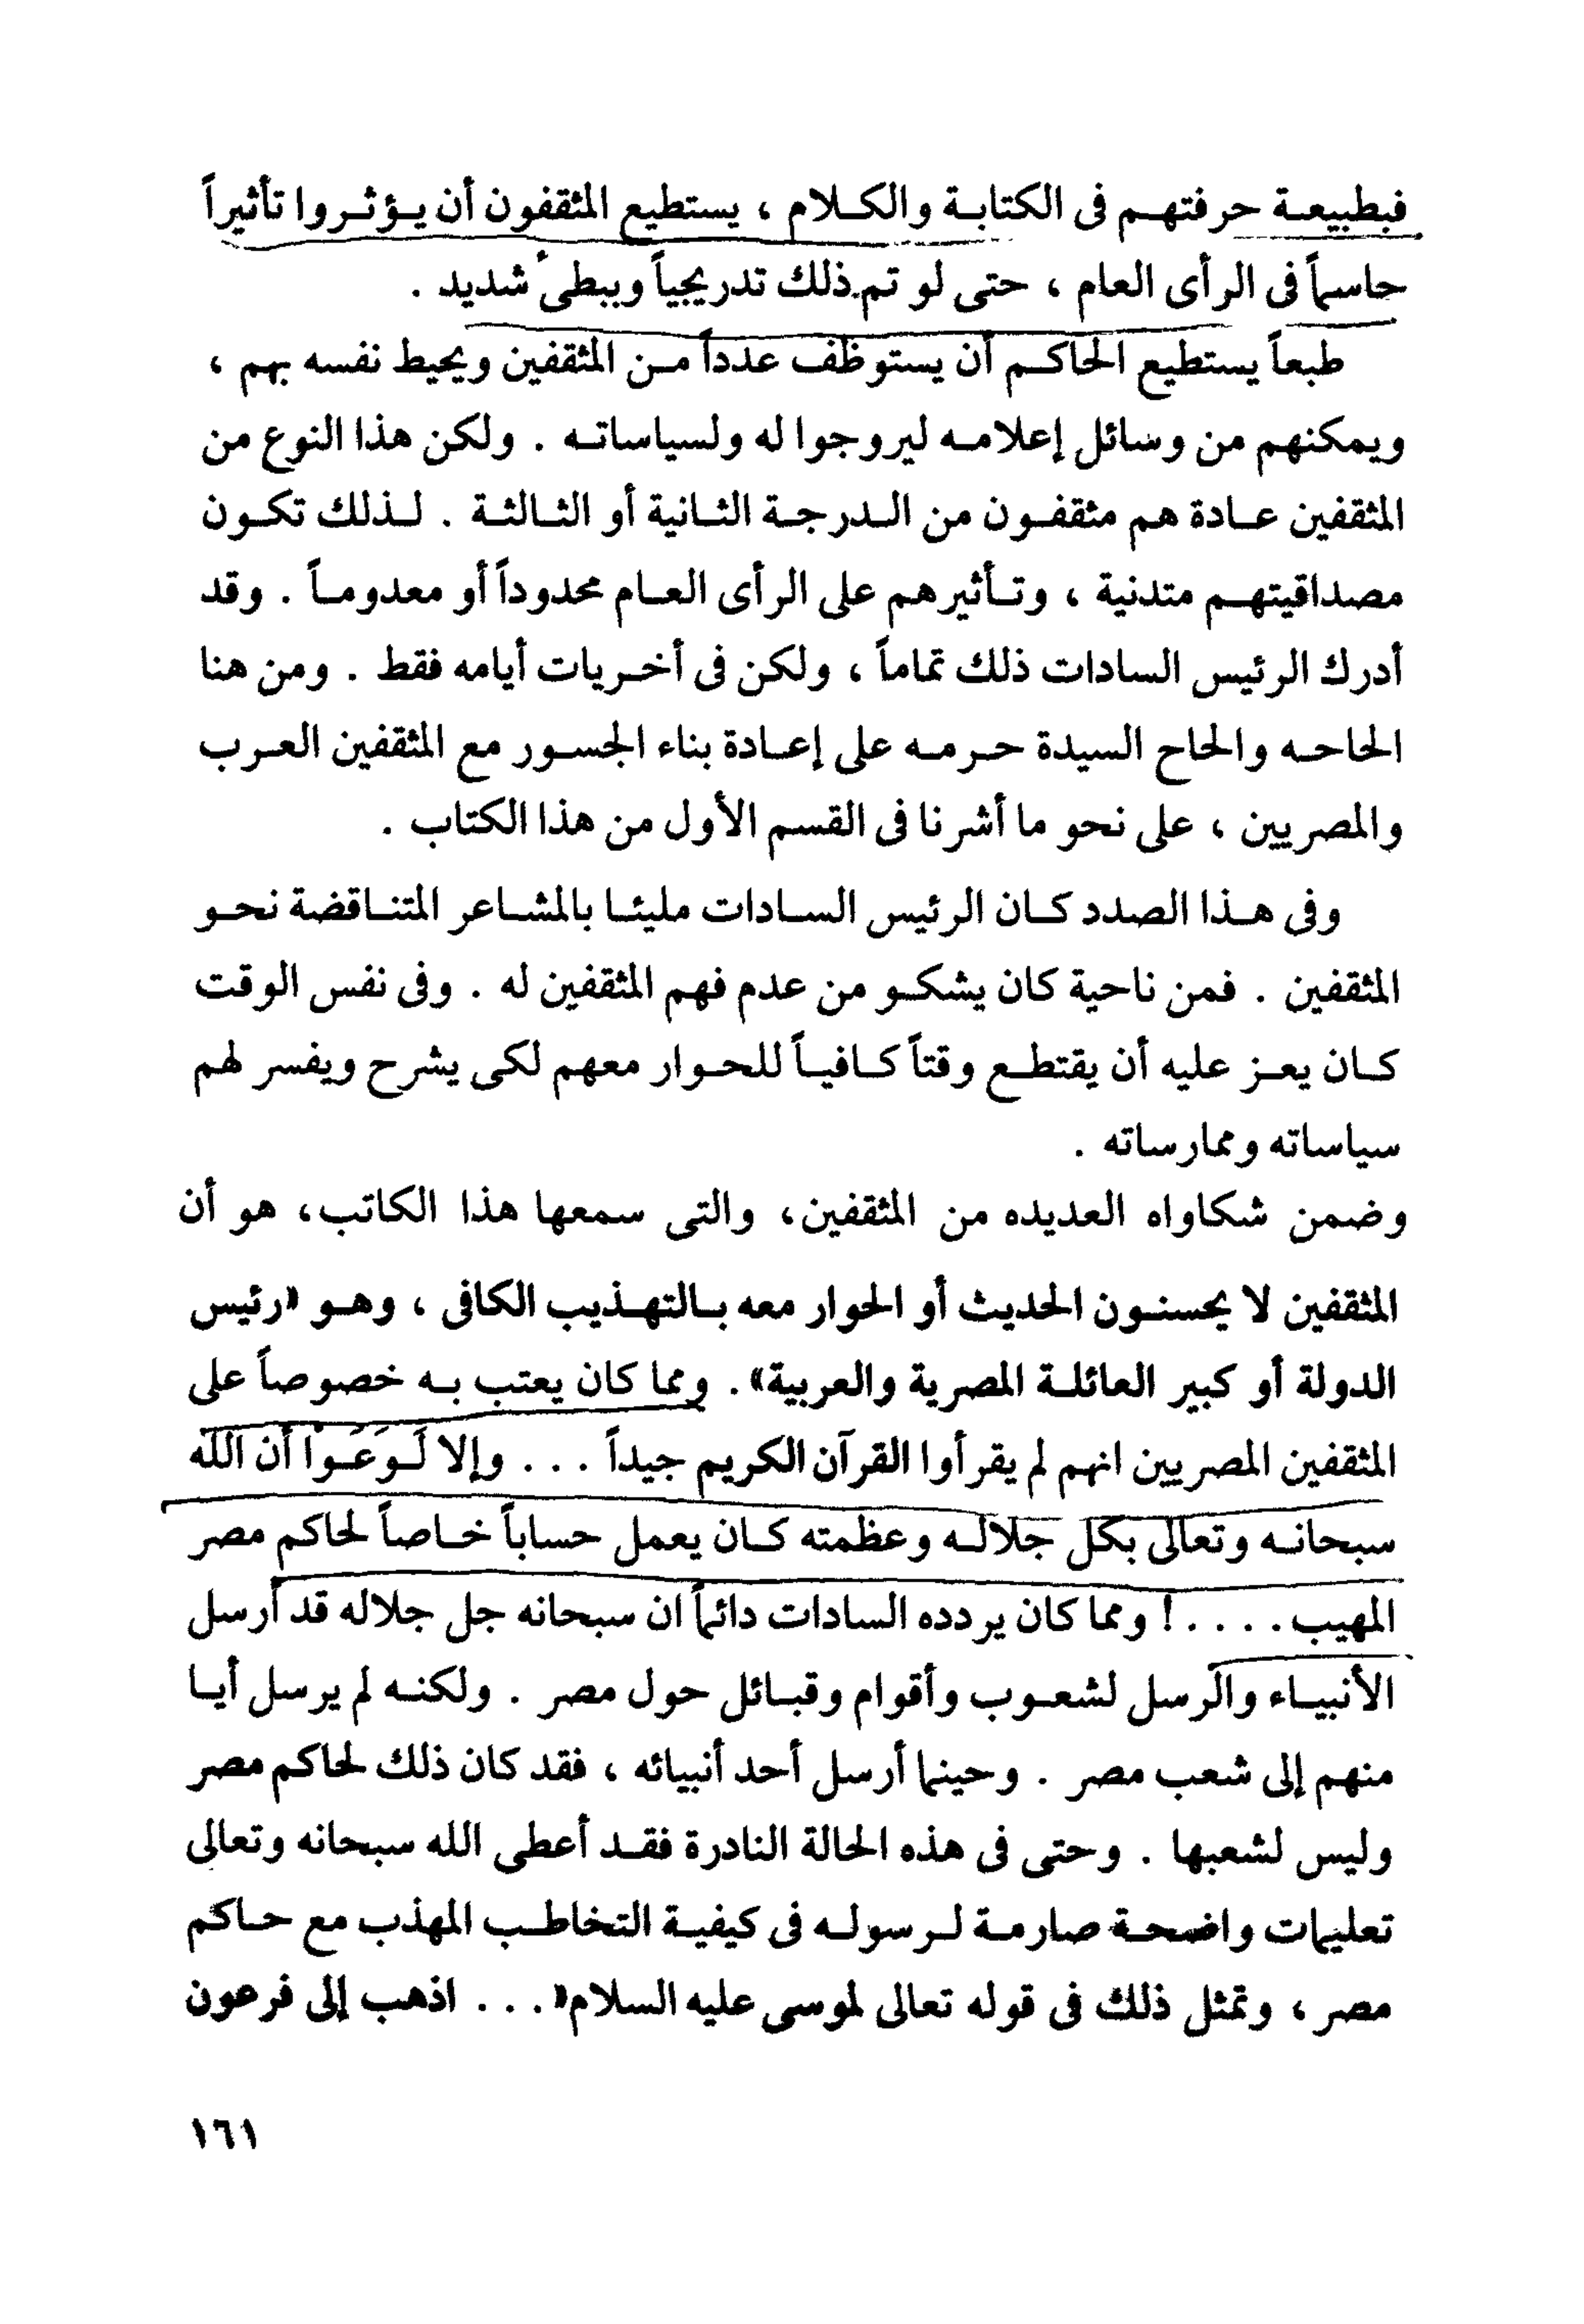 فبطبيعة حرفتهم فى الكتابة والكلام ، يستطيع المثقفون أن يؤثروا تأثيراً
حاسماً فى الرأى العام ، حتى لو تم ذلك تدريجياً وببطئ شديد .
طبعاً يستطيع الحاكم أن يستوظف عدداً من المثقفين ويحيط نفسه بهم ،
ويمكنهم من وسائل إعلامه ليروجوا له ولسياساته . ولكن هذا النوع من
المثقفين عادة هم مثقفون من الدرجة الثانية أو الثالثة . لذلك تكون
مصداقيتهم متدنية ، وتأثيرهم على الرأى العام محدوداً أو معدوماً . وقد
أدرك الرئيس السادات ذلك تماماً ، ولكن فى أخريات أيامه فقط . ومن هنا
الحاحه والحاح السيدة حرمه على إعادة بناء الجسور مع المثقفين العرب
والمصريين ، على نحو ما أشرنا فى القسم الأول من هذا الكتاب .
وفى هذا الصدد كان الرئيس السادات مليئا بالمشاعر المتناقضة نحو
المثقفين . فمن ناحية كان يشكو من عدم فهم المثقفين له . وفى نفس الوقت
كان يعز عليه أن يقتطع وقتاً كافياً للحوار معهم لكى يشرح ويفسر لهم
سياساته وممارساته .
وضمن شكاواه العديده من المثقفين، والتى سمعها هذا الكاتب، هو أن
المثقفين لا يحسنون الحديث أو الحوار معه بالتهذيب الكافى ، وهو «رئيس
الدولة أو كبير العائلة المصرية والعربية» . ومما كان يعتب به خصوصاً على
المثقفين المصريين انهم لم يقرأوا القرآن الكريم جيداً . . . وإلا لَوَعَوْا أن الله
سبحانه وتعالى بكل جلاله وعظمته كان يعمل حساباً خاصاً لحاكم مصر
المهيب . . . . ! ومما كان يردده السادات دائماً ان سبحانه جل جلاله قد أرسل
الأنبياء والرسل لشعوب وأقوام وقبائل حول مصر . ولكنه لم يرسل أيا
منهم إلى شعب مصر . وحينما أرسل أحد أنبيائه ، فقد كان ذلك لحاكم مصر
وليس لشعبها . وحتى فى هذه الحالة النادرة فقد أعطى الله سبحانه وتعالى
تعليمات واضحة صارمة لرسوله فى كيفية التخاطب المهذب مع حاكم
مصر ، وتمثل ذلك فى قوله تعالى لموسى عليه السلام« . . . اذهب إلى فرعون
١٦١